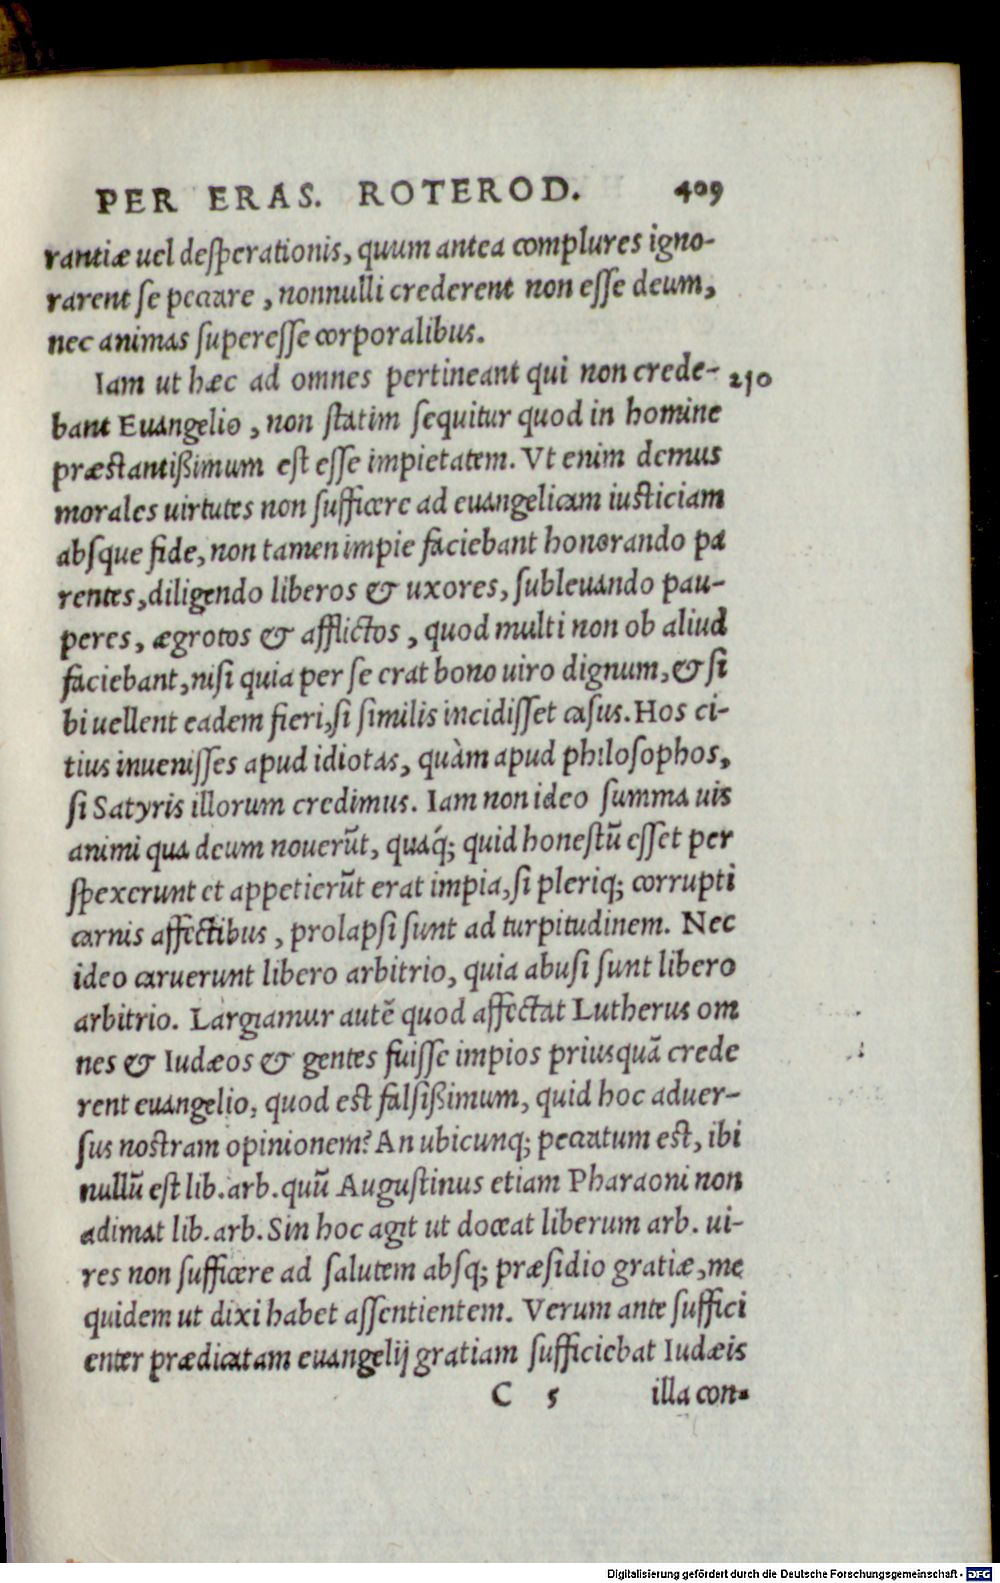 PER ERAS. ROTEROD. 409
rantiæ uel desperationis, quum antea complures igno-
rarent se peccare, nonnulli crederent non esse deum,
nec animas superesse corporalibus.
Iam ut hæc ad omnes pertineant qui non crede- 210
bant Euangelio, non statim sequitur quod in homine
præstantißimum est esse impietatem. Vt enim demus
morales uirtutes non sufficere ad euangelicam iusticiam
absque fide, non tamen impie faciebant honorando pa
rentes, diligendo liberos & uxores, subleuando pau-
peres, ægrotos & afflictos, quod multi non ob aliud
faciebant, nisi quia per se erat bono uiro dignum, & si
bi uellent eadem fieri, si similis incidisset casus. Hos ci-
tius inuenisses apud idiotas, quàm apud philosophos,
si Satyris illorum credimus. Iam non ideo summa uis
animi qua deum nouerũt, quaq́; quid honestũ esset per
spexerunt et appetierũt erat impia, si pleriq; corrupti
carnis affectibus, prolapsi sunt ad turpitudinem. Nec
ideo caruerunt libero arbitrio, quia abusi sunt libero
arbitrio. Largiamur autẽ quod affectat Lutherus om
nes & Iudæos & gentes fuisse impios priusquã crede
rent euangelio, quod est falsißimum, quid hoc aduer-
sus nostram opinionem? An ubicunq; peccatum est, ibi
nullũ est lib. arb. quũ Augustinus etiam Pharaoni non
adimat lib. arb. Sin hoc agit ut doceat liberum arb. ui-
res non sufficere ad salutem absq; præsidio gratiæ, me
quidem ut dixi habet assentientem. Verum ante suffici
enter prædicatam euangelij gratiam sufficiebat Iudæis
C 5 illa con-
Digitalisierung gefördert durch die Deutsche Forschungsgemeinschaft - DFG